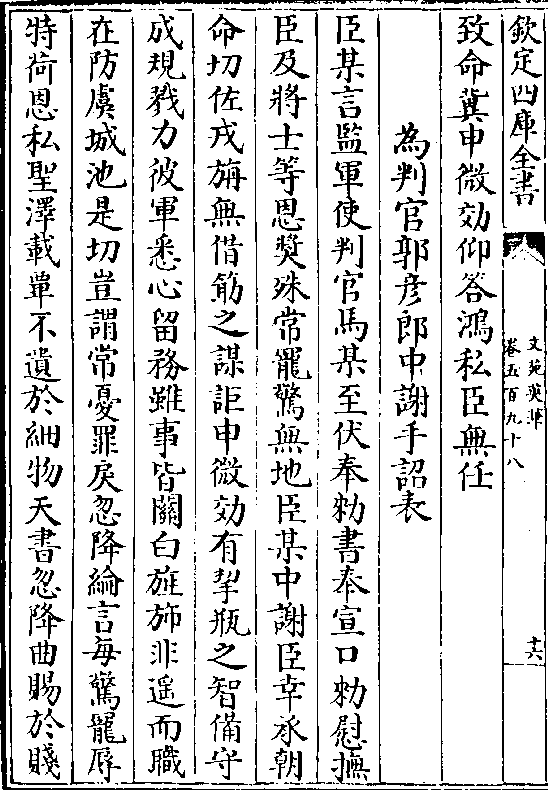 欽定四庫全書
文苑英華
卷五百九十八
十六
致命冀申微効仰答鴻私臣無任
為判官郭彦郎中謝手詔表
臣某言監軍使判官馬某至伏奉勅書奉宣口勅慰撫
臣及將士等恩奬殊常寵驚無地臣某中謝臣幸承朝
命切佐戎旃無借筯之謀詎申微効有挈瓶之智備守
成規戮力彼軍悉心留務雖事皆關白旌斾非遥而職
在防虞城池是切豈謂常憂罪戾忽降綸言每驚寵辱
特荷恩私聖澤載覃不遺於細物天書忽降曲賜於賤